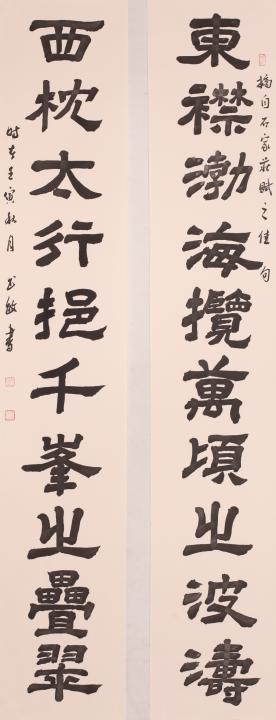 東襟渤海攬萬頃之波濤
摘自石家莊賦之佳句
西枕太行挹千峯之疊翠
時在壬寅秋月 書